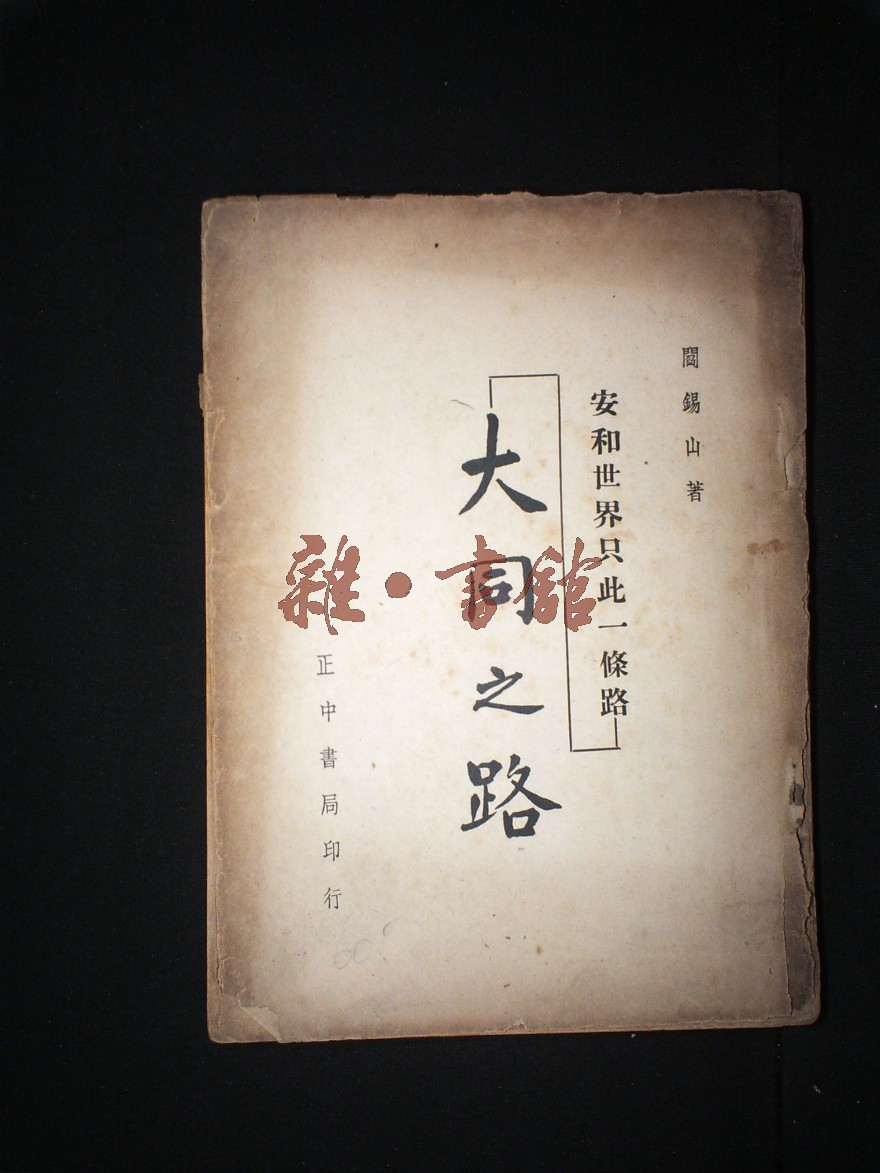 閻錫山著
安和世界只此一條路
大同之路
正中書局印行
雜·書舘